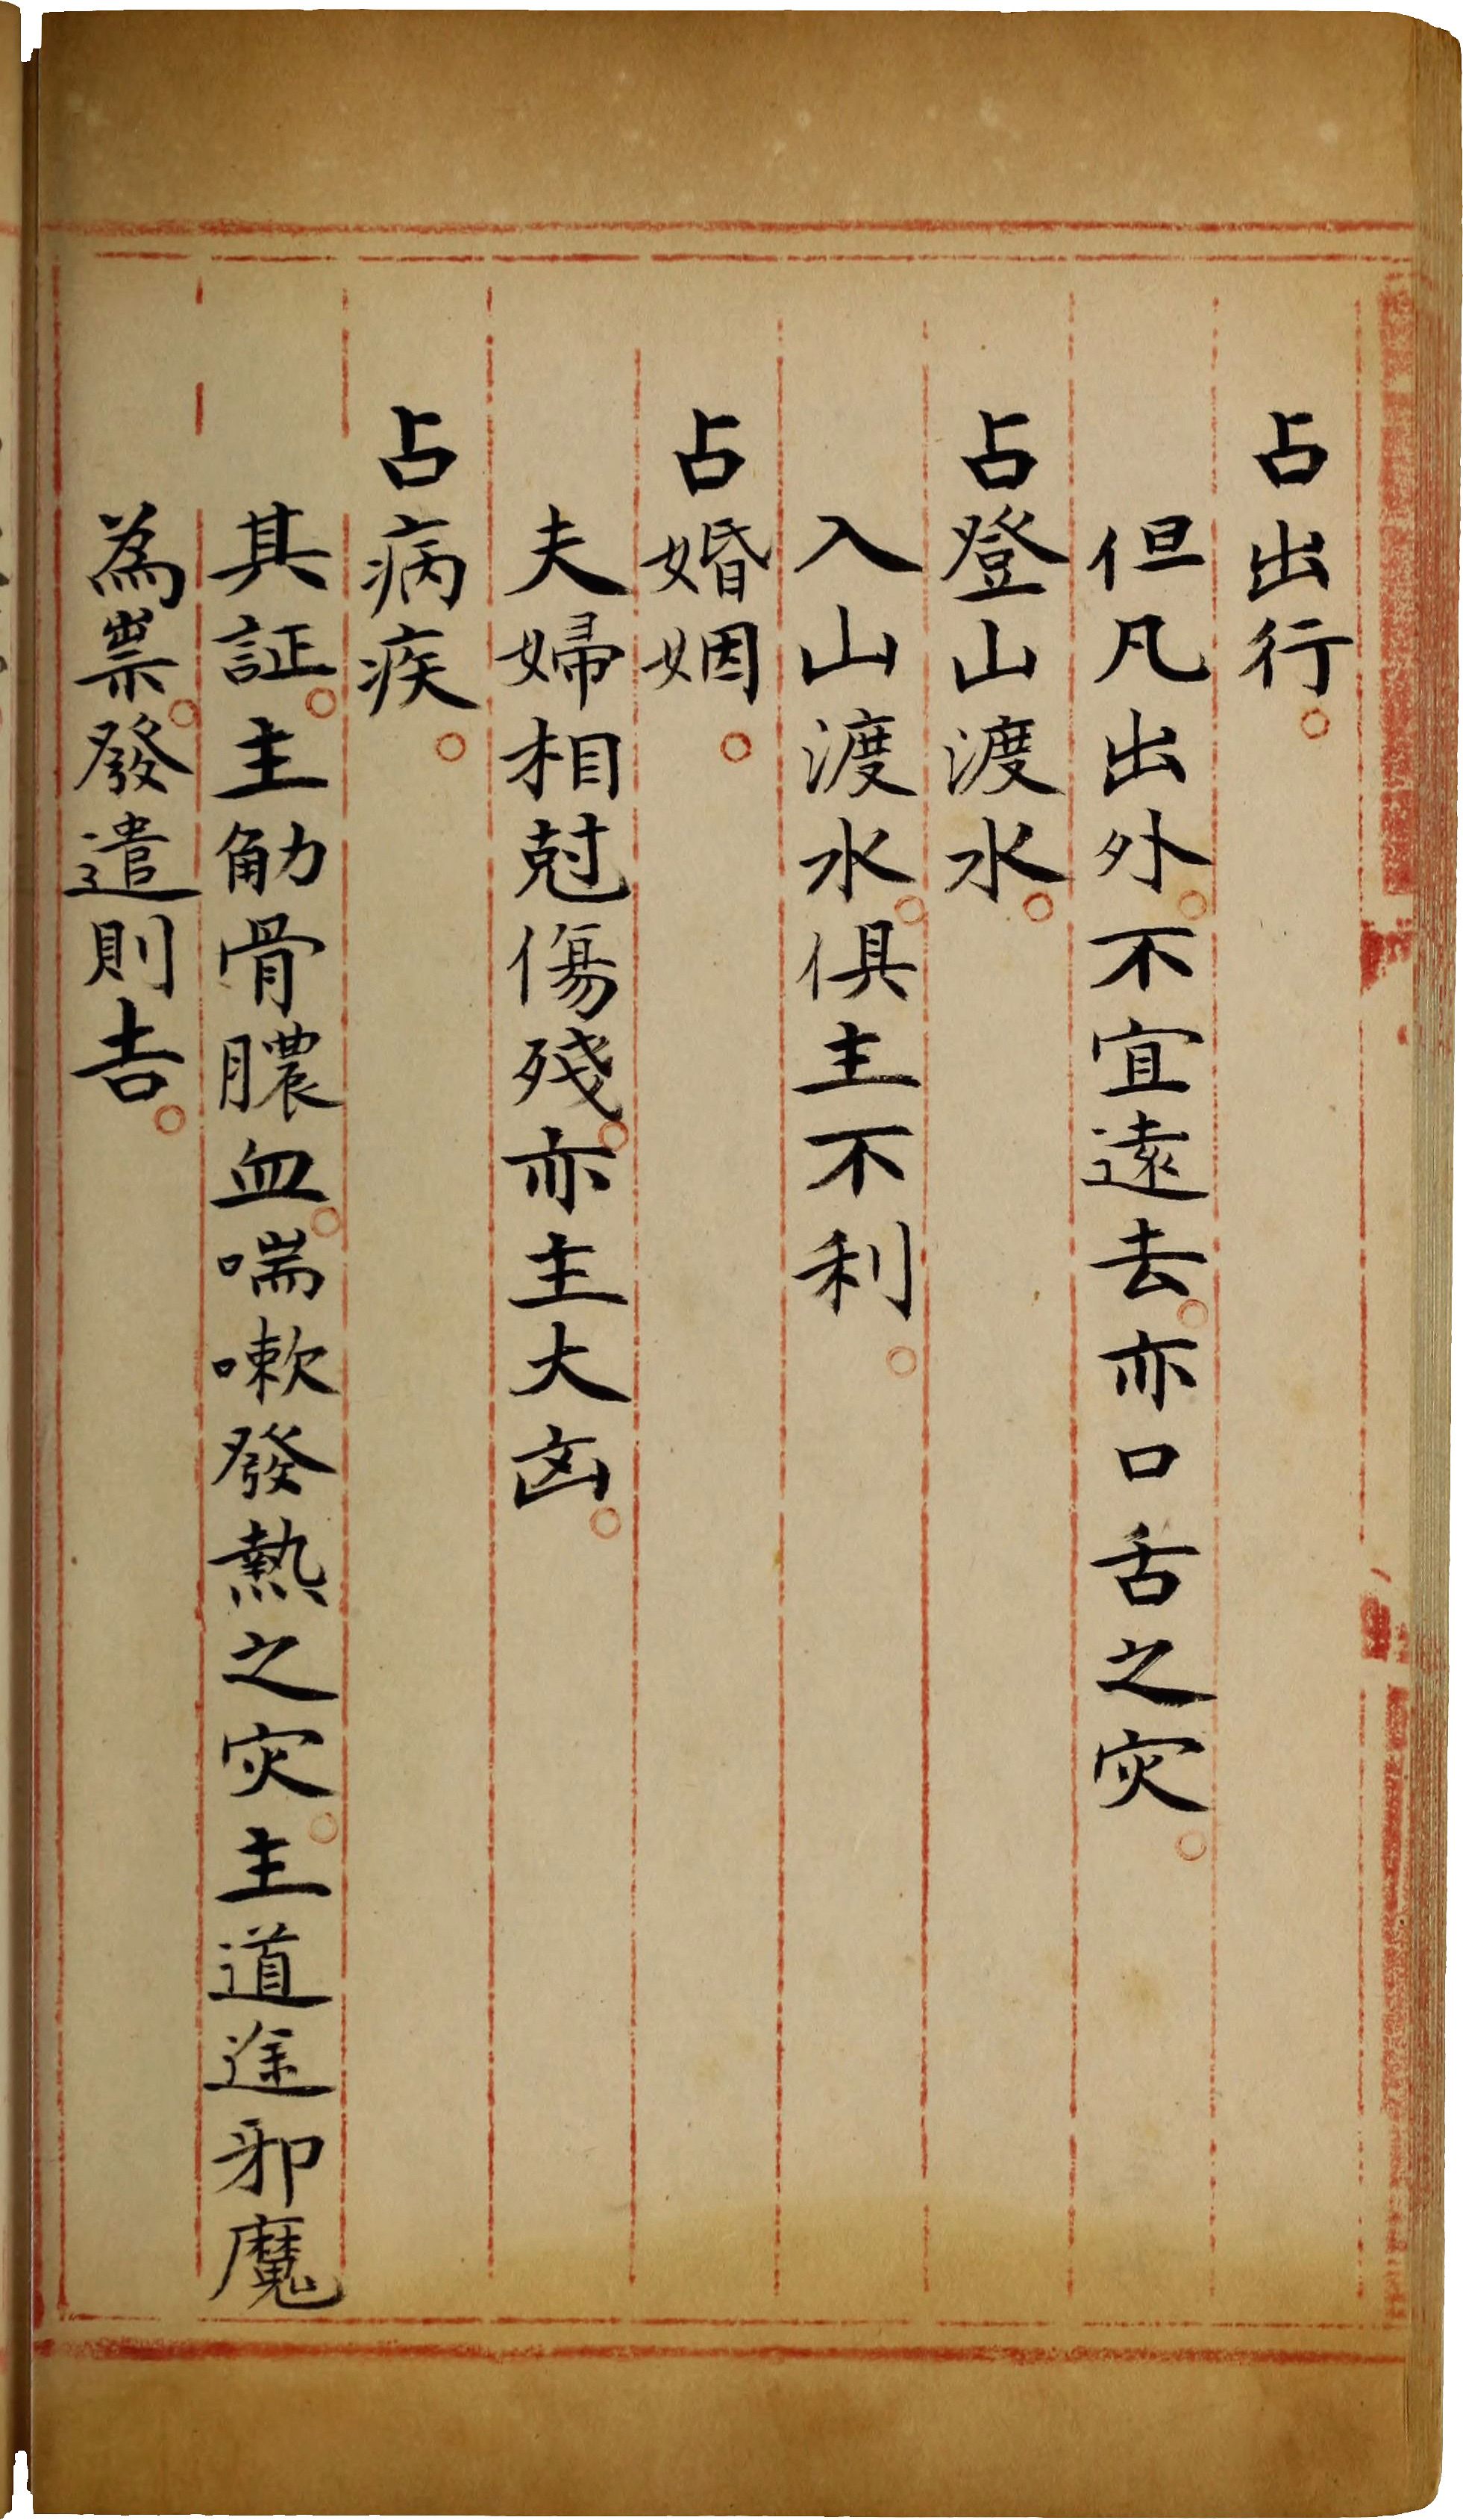 占出行。
但凡出外。不宜遠去。亦口舌之灾。
占登山渡水。
入山渡水。俱主不利。
占婚姻。
夫婦相尅傷殘。亦主大凶。
占病疾。
其証。主觔骨膿血。喘嗽發熱之灾。主道途邪魔
為祟。發遣則吉。